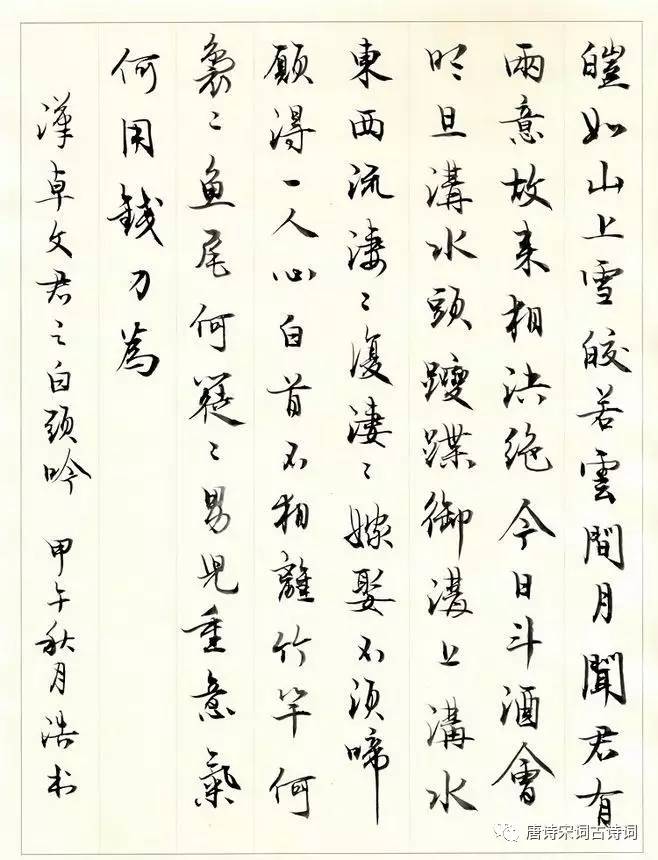 皚如山上雪皎若雲間月聞君有
兩意故来相決绝今日斗酒會
明旦溝水頭躞蹀御溝上溝水
東西流淒〻復淒〻嫁娶不須啼
願得一人心白首不相離竹竿何
裊〻鱼尾何簁〻男兒重意氣
何用錢刀為
漢卓文君之白頭吟 甲午秋月浩書
唐诗宋词古诗词